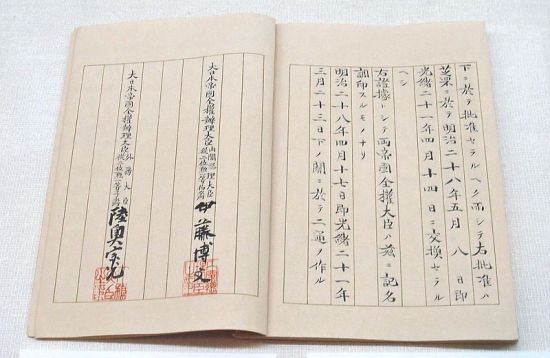 下ニ於テ批准セラルヘク而シテ右批准ハ
芝罘ニ於テ明治二十八年五月八日即
光緒二十一年四月十四日ニ交換セラル
ヘシ
右證據トシテ両帝國全權大臣ハ茲ニ記名
調印スルモノナリ
明治二十八年四月十七日即光緒二十一年
三月二十三日下ノ關ニ於テ二通ヲ作ル
大日本帝國全權辦理大臣
内閣總理大臣
從二位勲一等伯爵
伊藤博文
大日本帝國全權辦理大臣
外務大臣
從二位勲一等子爵
陸奥宗光